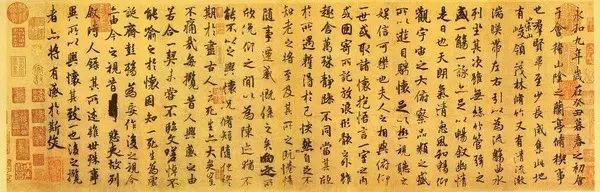 永和九年歲在癸丑暮春之初會
于會稽山陰之蘭亭脩稧事
也羣賢畢至少長咸集此地
有崇山峻領茂林脩竹又有清流激
湍映帶左右引以為流觴曲水
列坐其次雖無絲竹管弦之
盛一觴一詠亦足以暢敘幽情
是日也天朗氣清惠風和暢仰
觀宇宙之大俯察品類之盛
所以遊目騁懷足以極視聽之
娛信可樂也夫人之相與俯仰
一世或取諸懷抱悟言一室之內
或因寄所託放浪形骸之外雖
趣舍萬殊靜躁不同當其欣
於所遇蹔得於己怏然自足不
知老之將至及其所之既惓情
隨事遷感慨係之矣向之所
欣俛仰之間以為陳迹猶不
能不以之興懷況脩短隨化終
期於盡古人云死生亦大矣豈
不痛哉每攬昔人興感之由
若合一契未嘗不臨文嗟悼不
能喻之於懷固知一死生為虛
誕齊彭殤為妄作後之視今
亦由今之視昔悲夫故列
敘時人錄其所述雖世殊事
異所以興懷其致一也後之攬
者亦將有感於斯文